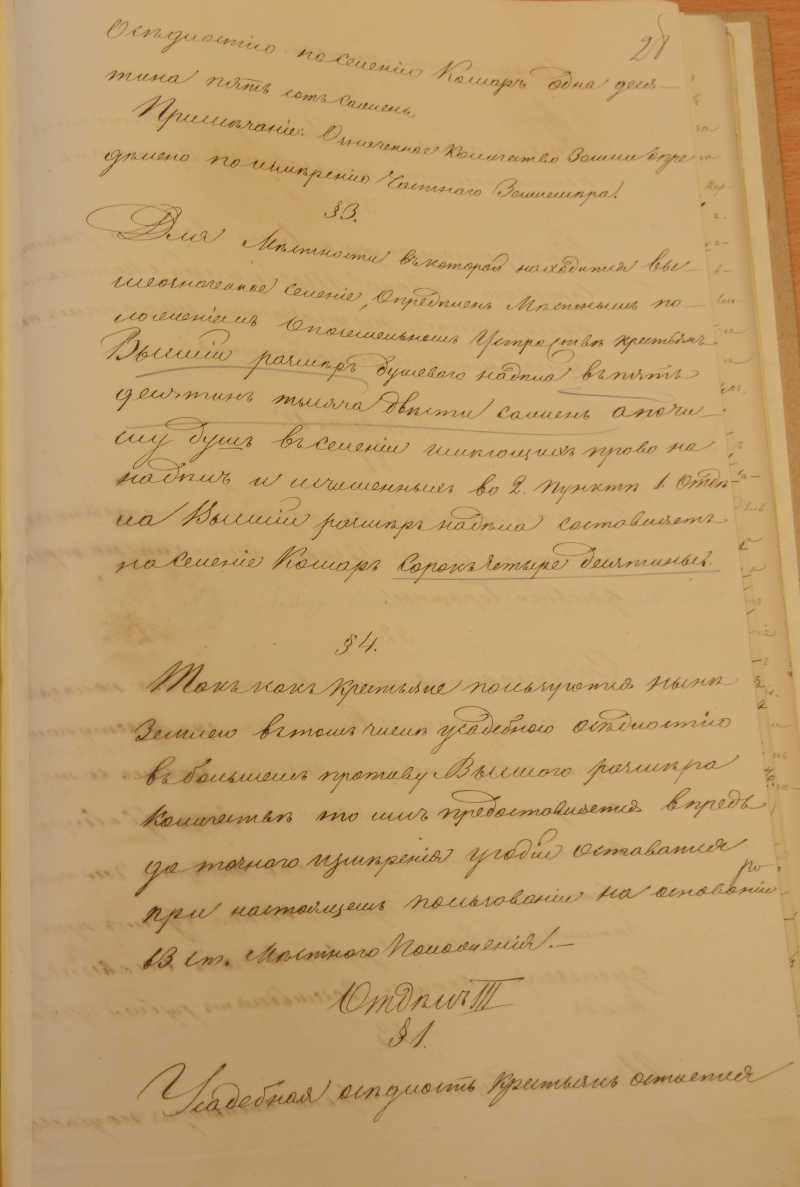 28
Осѣдлостію по селенію Кошаръ одна деся-
тина пять сотъ сажень,
Примѣчаніе. Означенное количество Земли опре
дѣлено по измѣренію Частнаго Землемѣра.
§ 3.
Для Мѣстности въ которой находится вы-
шеозначенное селеніе, Опредѣленъ Мѣстнымъ по-
ложеніемъ О поземельномъ Устройствѣ крестьянъ
Высшій размѣръ душеваго надѣла въ пять
десятинъ тысяча двѣсти сажень а по чи-
слу душъ въ селеніи имѣющихъ право на
надѣлъ и исчисленныхъ во 2. пунктѣ 1. Отдѣ-
ла Высшій размѣръ надѣла составляетъ
по селеніе Кошаръ сорокъ четыре десятины.
§ 4.
Такъ какъ крестьяне пользуются нынѣ
Землею въ томъ числѣ усадебною осѣдлостію
въ большемъ противу Высшаго размѣра
количествѣ то имъ предоставляется впредь
до точнаго измѣренія угодій оставатся
при настоящемъ пользованіи на основаніи
13 ст. Мѣстнаго Положенія.—
Отдѣлъ III
§ 1.
Усадебная осѣдлость крестьянъ остается